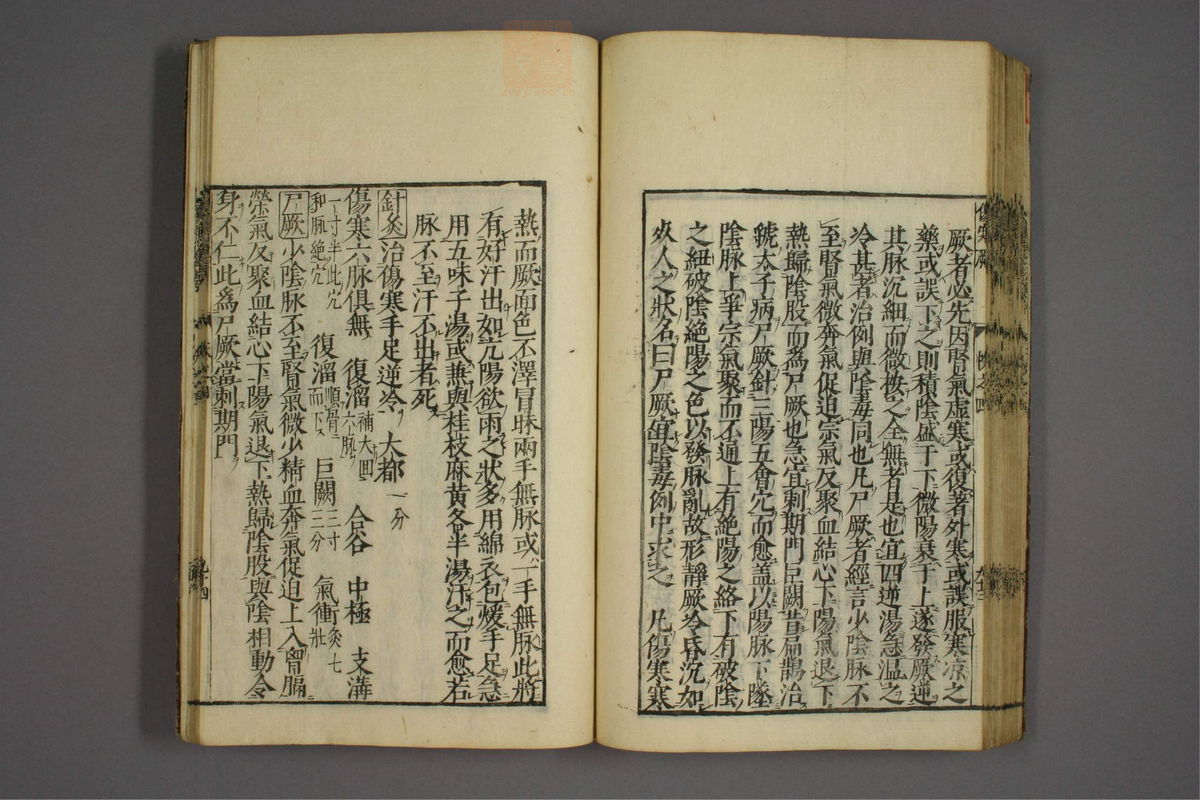 厥者必先因腎氣虛寒或復著外寒或誤服寒凉之
藥或誤下之則積陰盛于下微陽衰于上遂發厥逆
其脉沉細而微按之全無者是也宜四逆湯急温之
冷甚者治例與陰毒同也凡尸厥者經言少陰脉不
至腎氣微奔氣促迫宗氣反聚血結心下陽氣退下
熱歸陰股而為尸厥也急宜刺期門巨闕昔扁鵲治
虢太子病尸厥針三陽五會穴而愈盖以陽脉下墜
陰脉上爭宗氣聚而不通上有絶陽之絡下有破陰
之紐破陰絶陽之色以發脉亂故形靜厥冷昏沉如
死人之狀名曰尸厥宜陰毒例中求之 凡傷寒寒
熱而厥面色不澤冒昧兩手無脉或一手無脉此將
有好汗出如亢陽欲雨之狀多用綿衣包煖手足急
用五味子湯或兼與桂枝麻黄各半湯汗之而愈若
脉不至汗不出者死
針灸治傷寒手足逆冷 大都一分
傷寒六脉俱無 復溜補大回六脉 合谷 中極 支溝
一寸半此穴和脉絶穴 復溜順骨而下 巨闕三寸三分 氣衝灸七壯
尸厥少陰脉不至腎氣微少精血奔氣促迫上入胷膈
榮氣反聚血結心下陽氣退下熱歸陰股與陰相動令
身不仁此為尸厥當刺期門